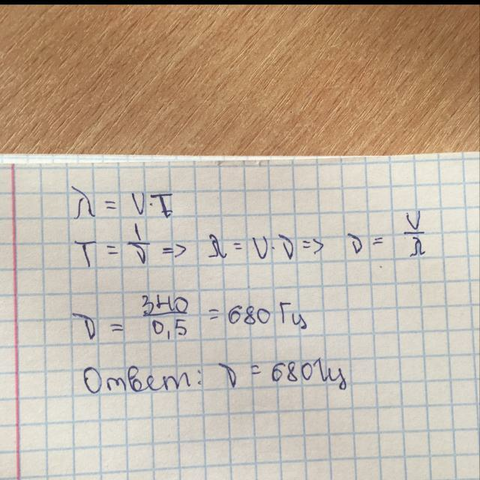 λ = υ·T
T = 1/ν => λ = υ·ν => ν = υ/λ
ν = 340/0,5 = 680 Гц
Ответ: ν = 680 Гц